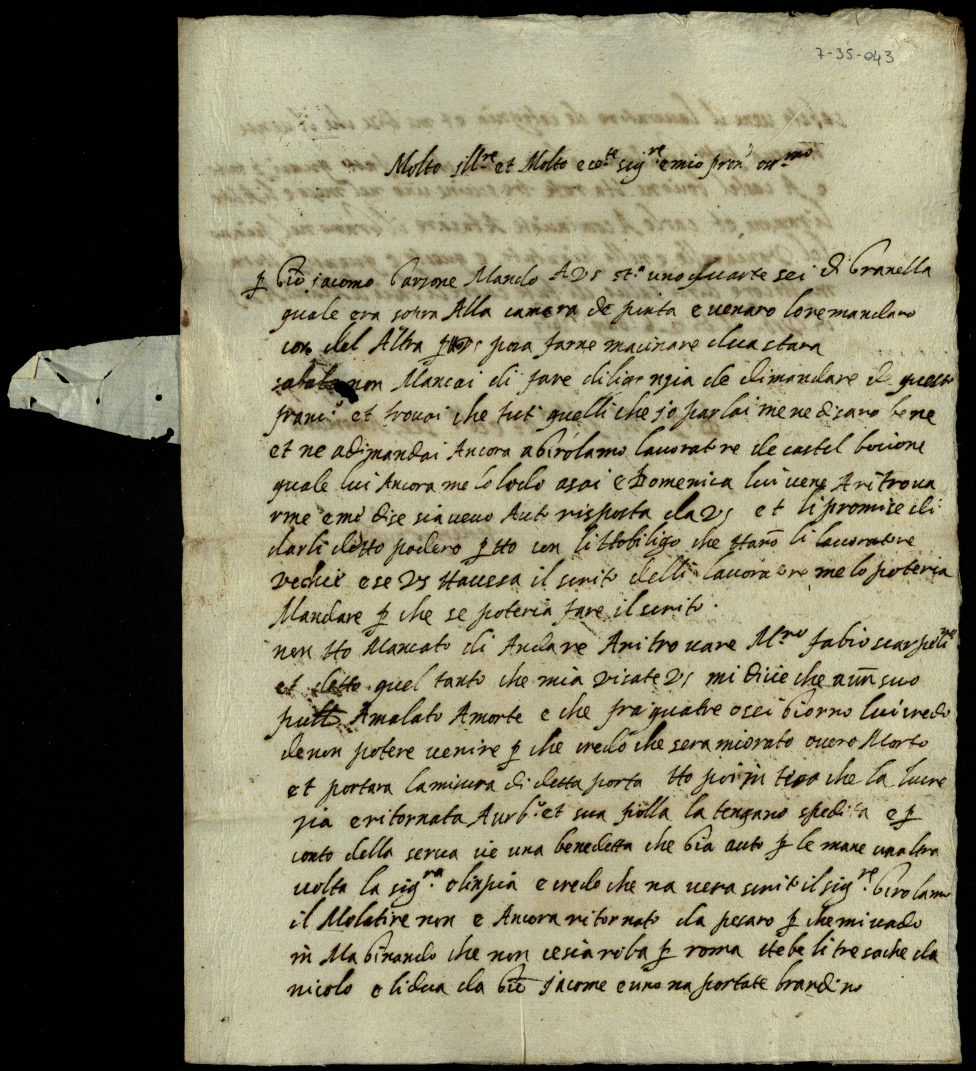 7-35-043
Molto Ill.re et Molto ecc.te sig.re e mio pron
p Gio jacomo Garzone Mando A VS st.a uno quarte sei di Granella
quale era sopra Alla camera de piata e venaro lo remandaro
con del Altra VS poza farne macinare dua stara
sabato non Mancai di fare diligenzia de dimandare de questo
franc.o et trovai che tuti quelli che jo parlai me ne dicano bene
et ne adimandai Ancora a Girolamo lavoratore de castel bocione
quale lui Ancora me lo lodo asai e Domenica lui vene A ritrova
rme e me dise si aveva Auto risposta da VS et li promise di
darli detto podere p tto con li ttobiligo che ttano li lavoratore
vechie e se VS ttavesa il scrito delli lavoratore me lo poteria
Mandare p che se poteria fare il scrito.
non tto Mancato di Andare A ritrovare M.ro fabio scarpelino
et detto quel tanto che mia VS mi dicie che a un suo
putto Amalato A morte e che fra quatre o sei Giorno lui credo
de non potere venire p che credo che sera miorato overo Morto
et portara la misura di detta porta tto poi in teso che la lucre
zia e ritornata A urb.o et sua la tengano spedita e p
conto della serva cie una benedetta che Gia auto p le mane unaltra
volta la sig.ra olinpia e credo che na vera scrito il sig.re Girolamo
il Molatire non e Ancora ritornato da pesaro p che mi vado
in Maginando che non ce sia roba p roma ttebe li tre sache da
nicolo e li dua da Gio Jacome e uno na portate brandino